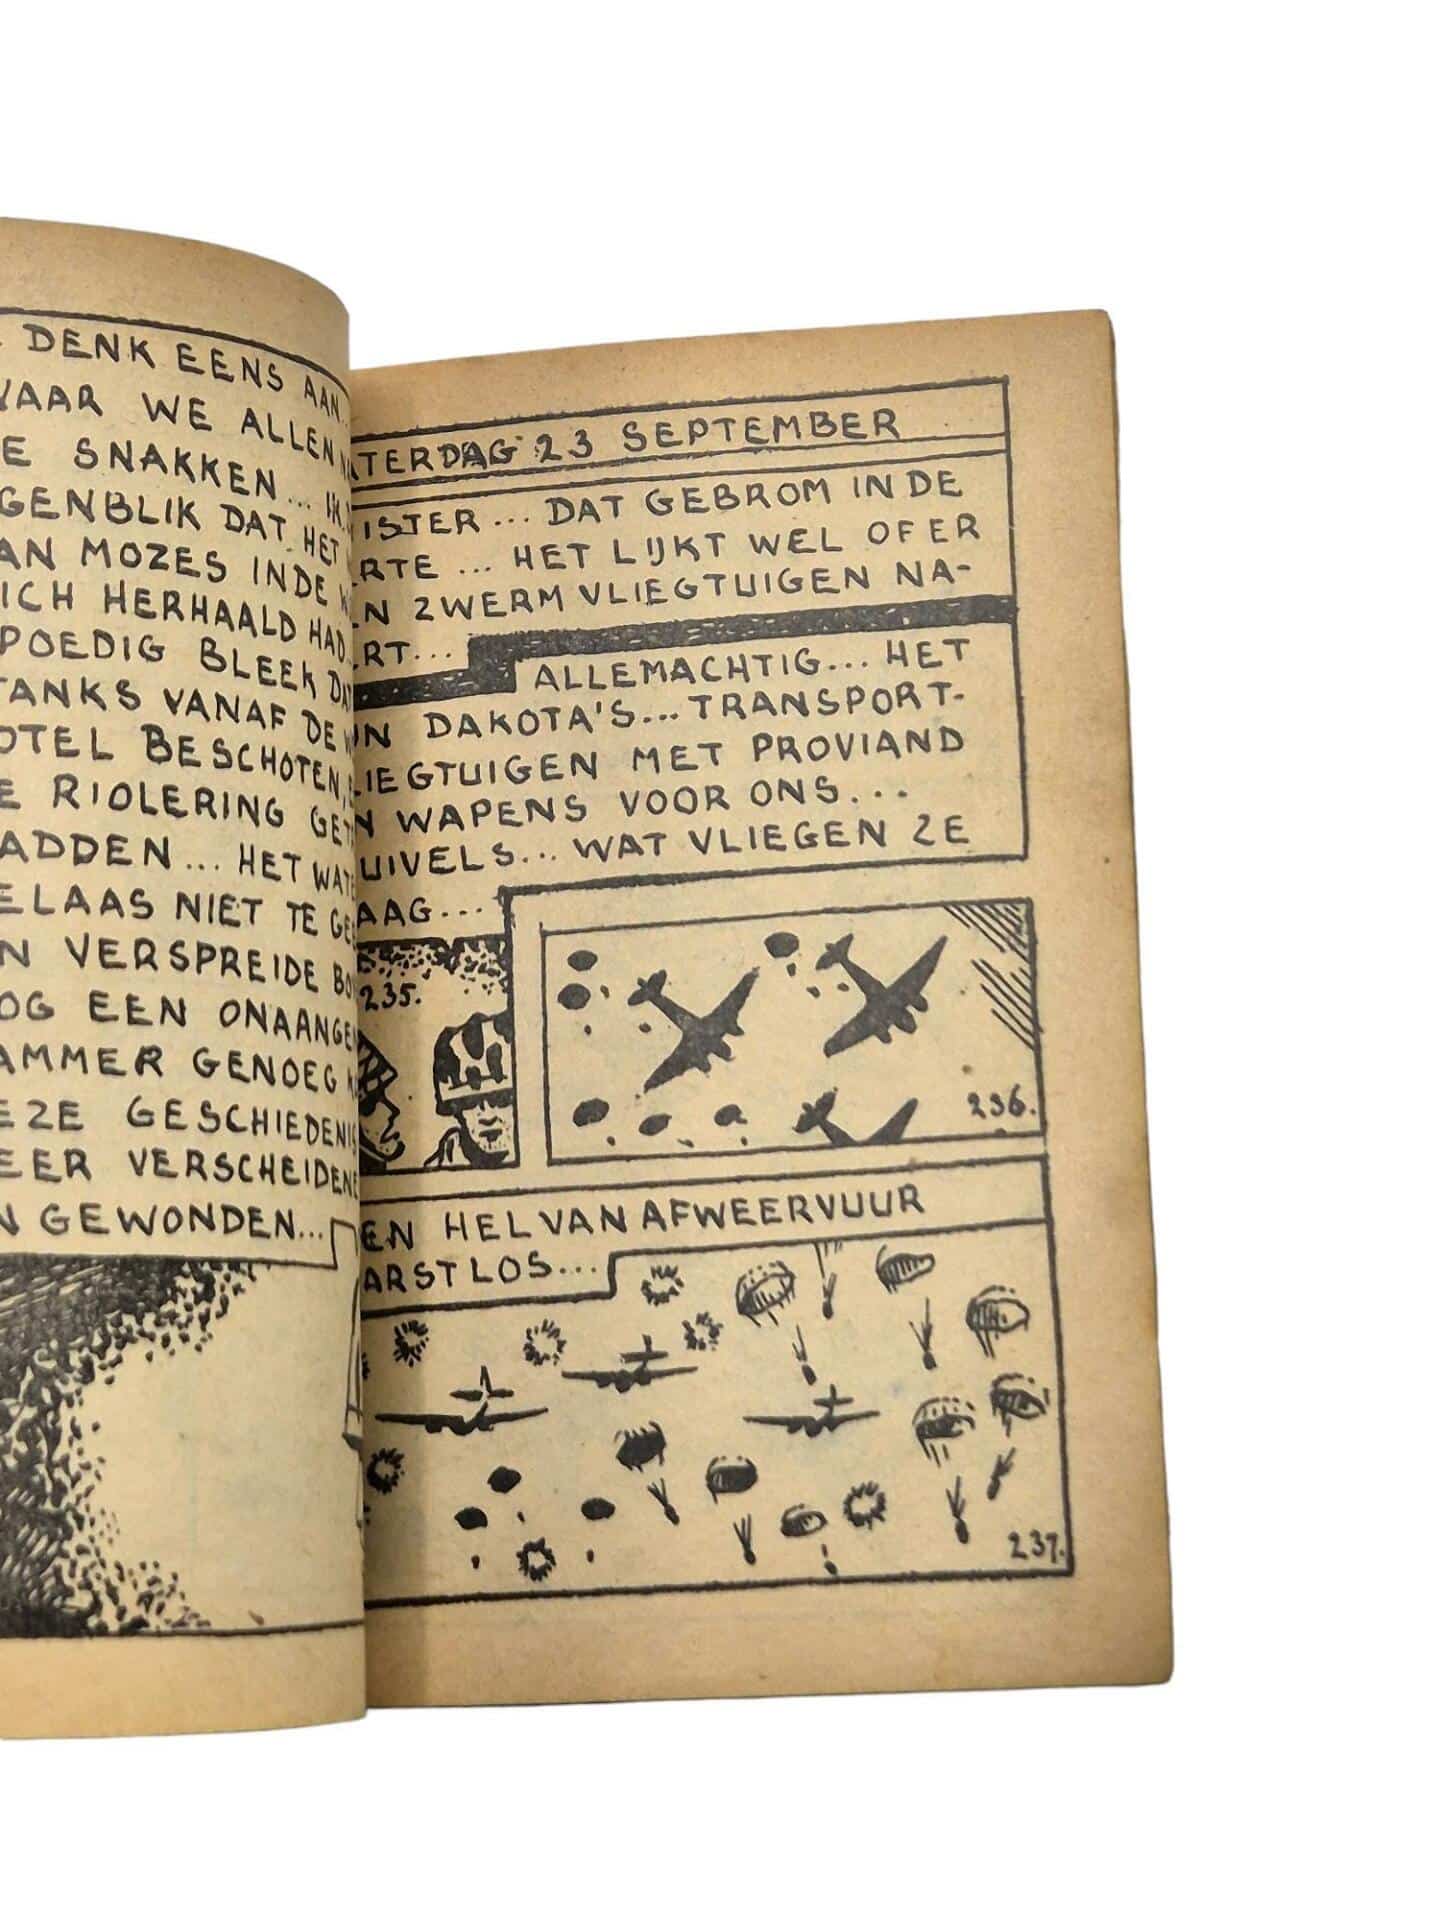 DENK EENS AAN
WE ALLEN
SNAKKEN... IK
DAT HET
MOZES IN DE
HERHAALD HAD
BLEEK DAT
VANAF DE
BESCHOTEN,
RIOLERING
... HET
NIET TE
VERSPREIDE
EEN
GENOEG
GESCHIEDENIS
VERSCHEIDENE
GEWONDEN...
TERDAG 23 SEPTEMBER
ISTER... DAT GEBROM IN DE
RTE... HET LIJKT WEL OF ER
EN ZWERM VLIEGTUIGEN NA-
ERT...
ALLEMACHTIG... HET
DAKOTA'S... TRANSPORT-
LIEGTUIGEN MET PROVIAND
WAPENS VOOR ONS...
UIVELS... WAT VLIEGEN ZE
AAG...
235.
236.
EN HEL VAN AFWEERVUUR
ARST LOS...
237.